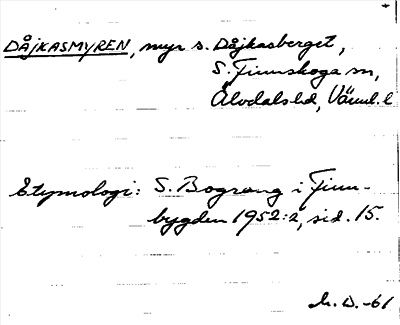 DÅJKASMYREN, myr s. Dåjkasberget,
S. Finnskoga sn,
Älvdals hd, Värml. l
Etymologi: S. Bograng i Finn-
bygden 1952:2, sid. 15.
M. D. -61